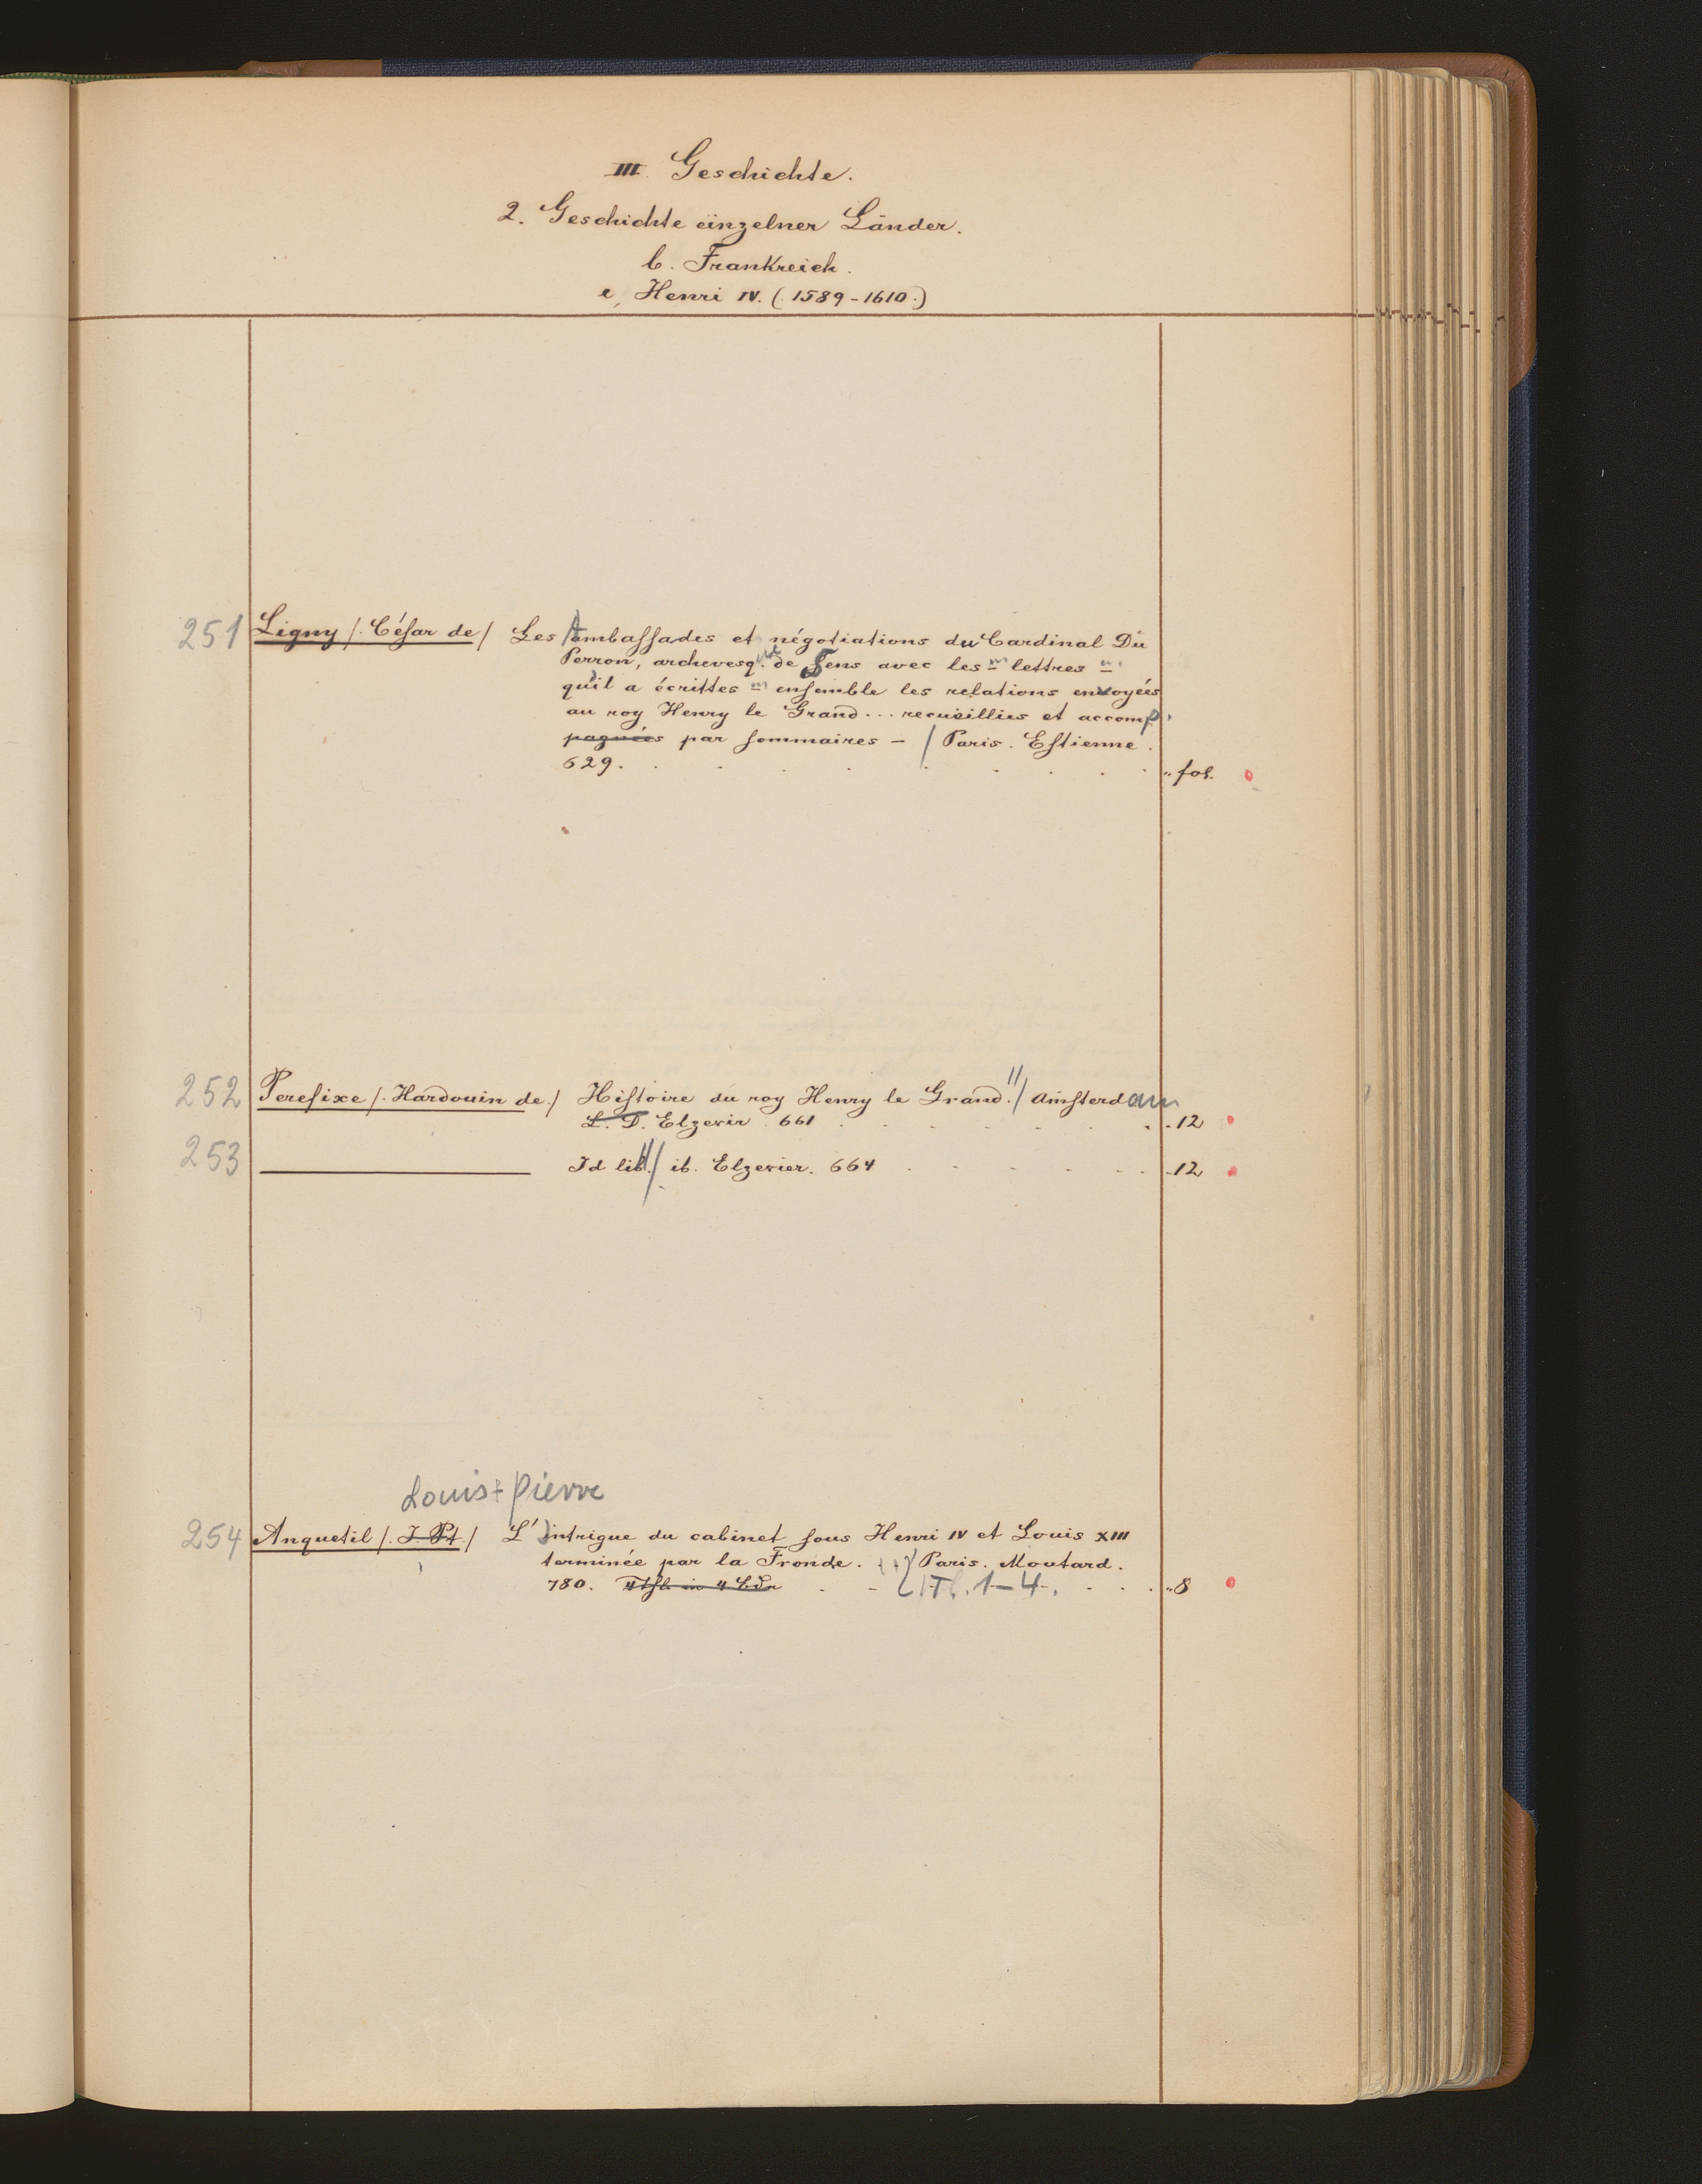 III. Geschichte.
2. Geschichte einzelner Länder.
b. Frankreich.
e, Henri IV. (1589-1610.)
251 Ligny /. Céſar de / Les Ambaſſades et négotiations du Cardinal Du
Perron, archevesq. de Sens avec les lettres
qu'il a écrittes enſemble les relations envoyées
au roy Henry le Grand... recueillies et accomp.
pagnées par ſommaires - / Paris. Eſtienne.
629. fol.
252 Perefixe /. Hardouin de. / Hiſtoire du roy Henry le Grand. / Amſterdam
L. D. Elzevir 661 12
253 Id lib. / ib. Elzevier. 664 12
Louis-Pierre
254 Anquetil /. J. Pt. / L'intrigue du cabinet ſous Henri IV et Louis XIII
terminée par la Fronde. Paris. Moutard.
780. Tl. 1-4. 8